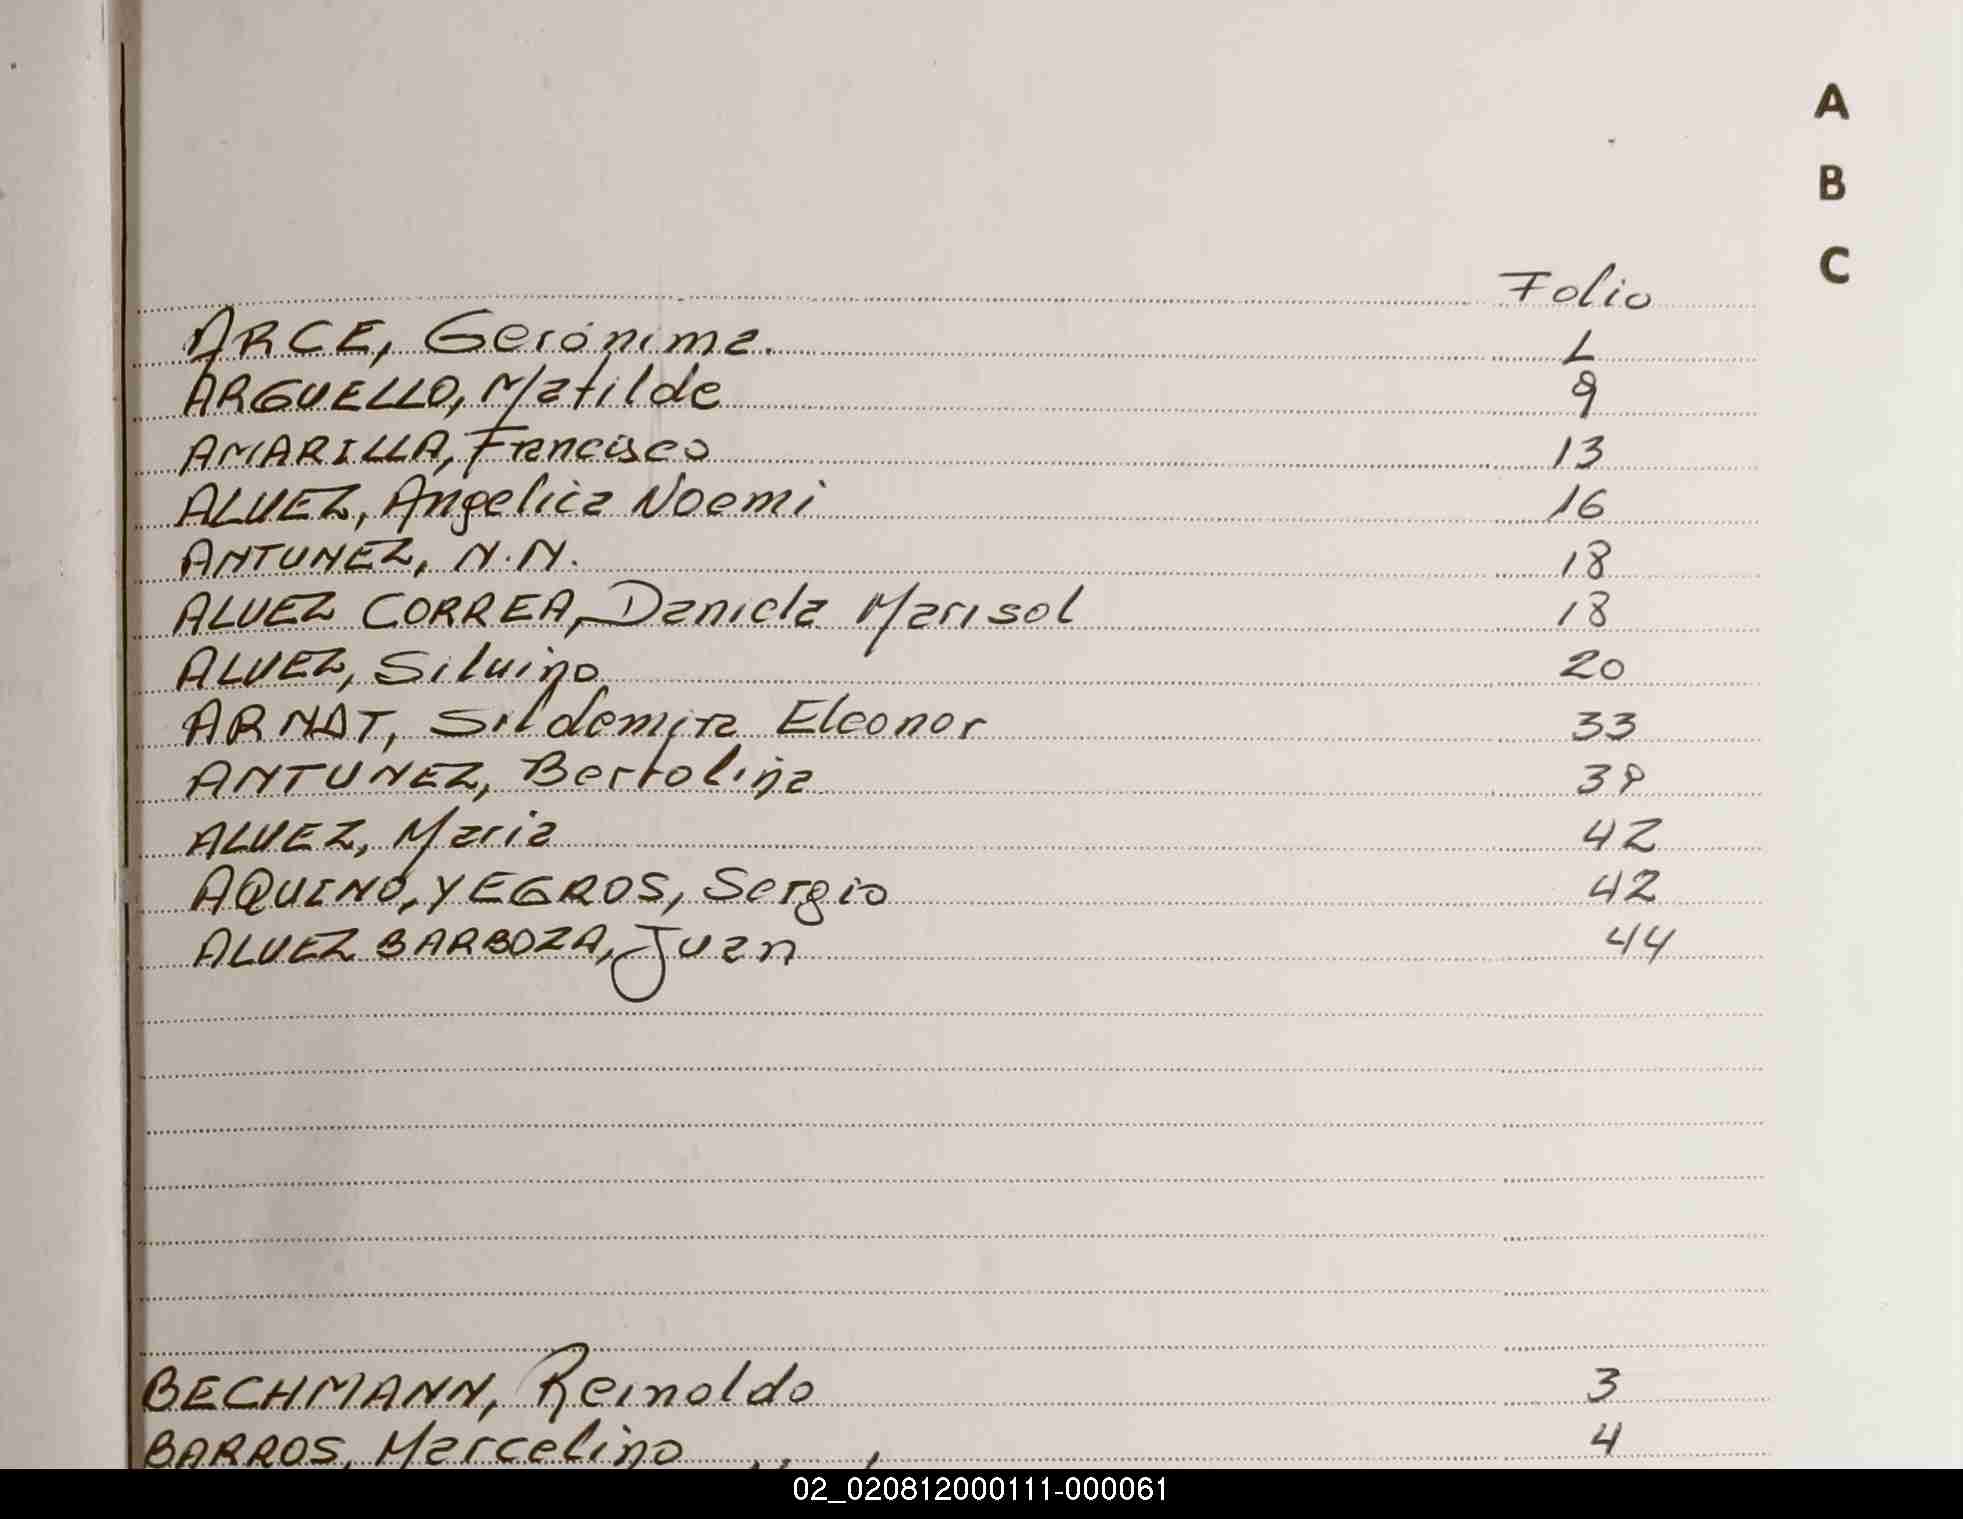 A
B
C
Folio
ARCE, Gerónima. 1
ARGUELLO, Matilde 9
AMARILLA, Francisco 13
ALVEZ, Angelica Noemi 16
ANTUNEZ, N.N. 18
ALVEZ CORREA, Daniela Marisol 18
ALVEZ, Silvino 20
ARNDT, Sildemira Eleonor 33
ANTUNEZ, Bertolina 39
ALVEZ, Maria 42
AQUINO, YEGROS, Sergio 42
ALVEZ BARBOZA, Juan 44
BECHMANN, Reinoldo 3
BARROS, Marcelino 4
02_020812000111-000061